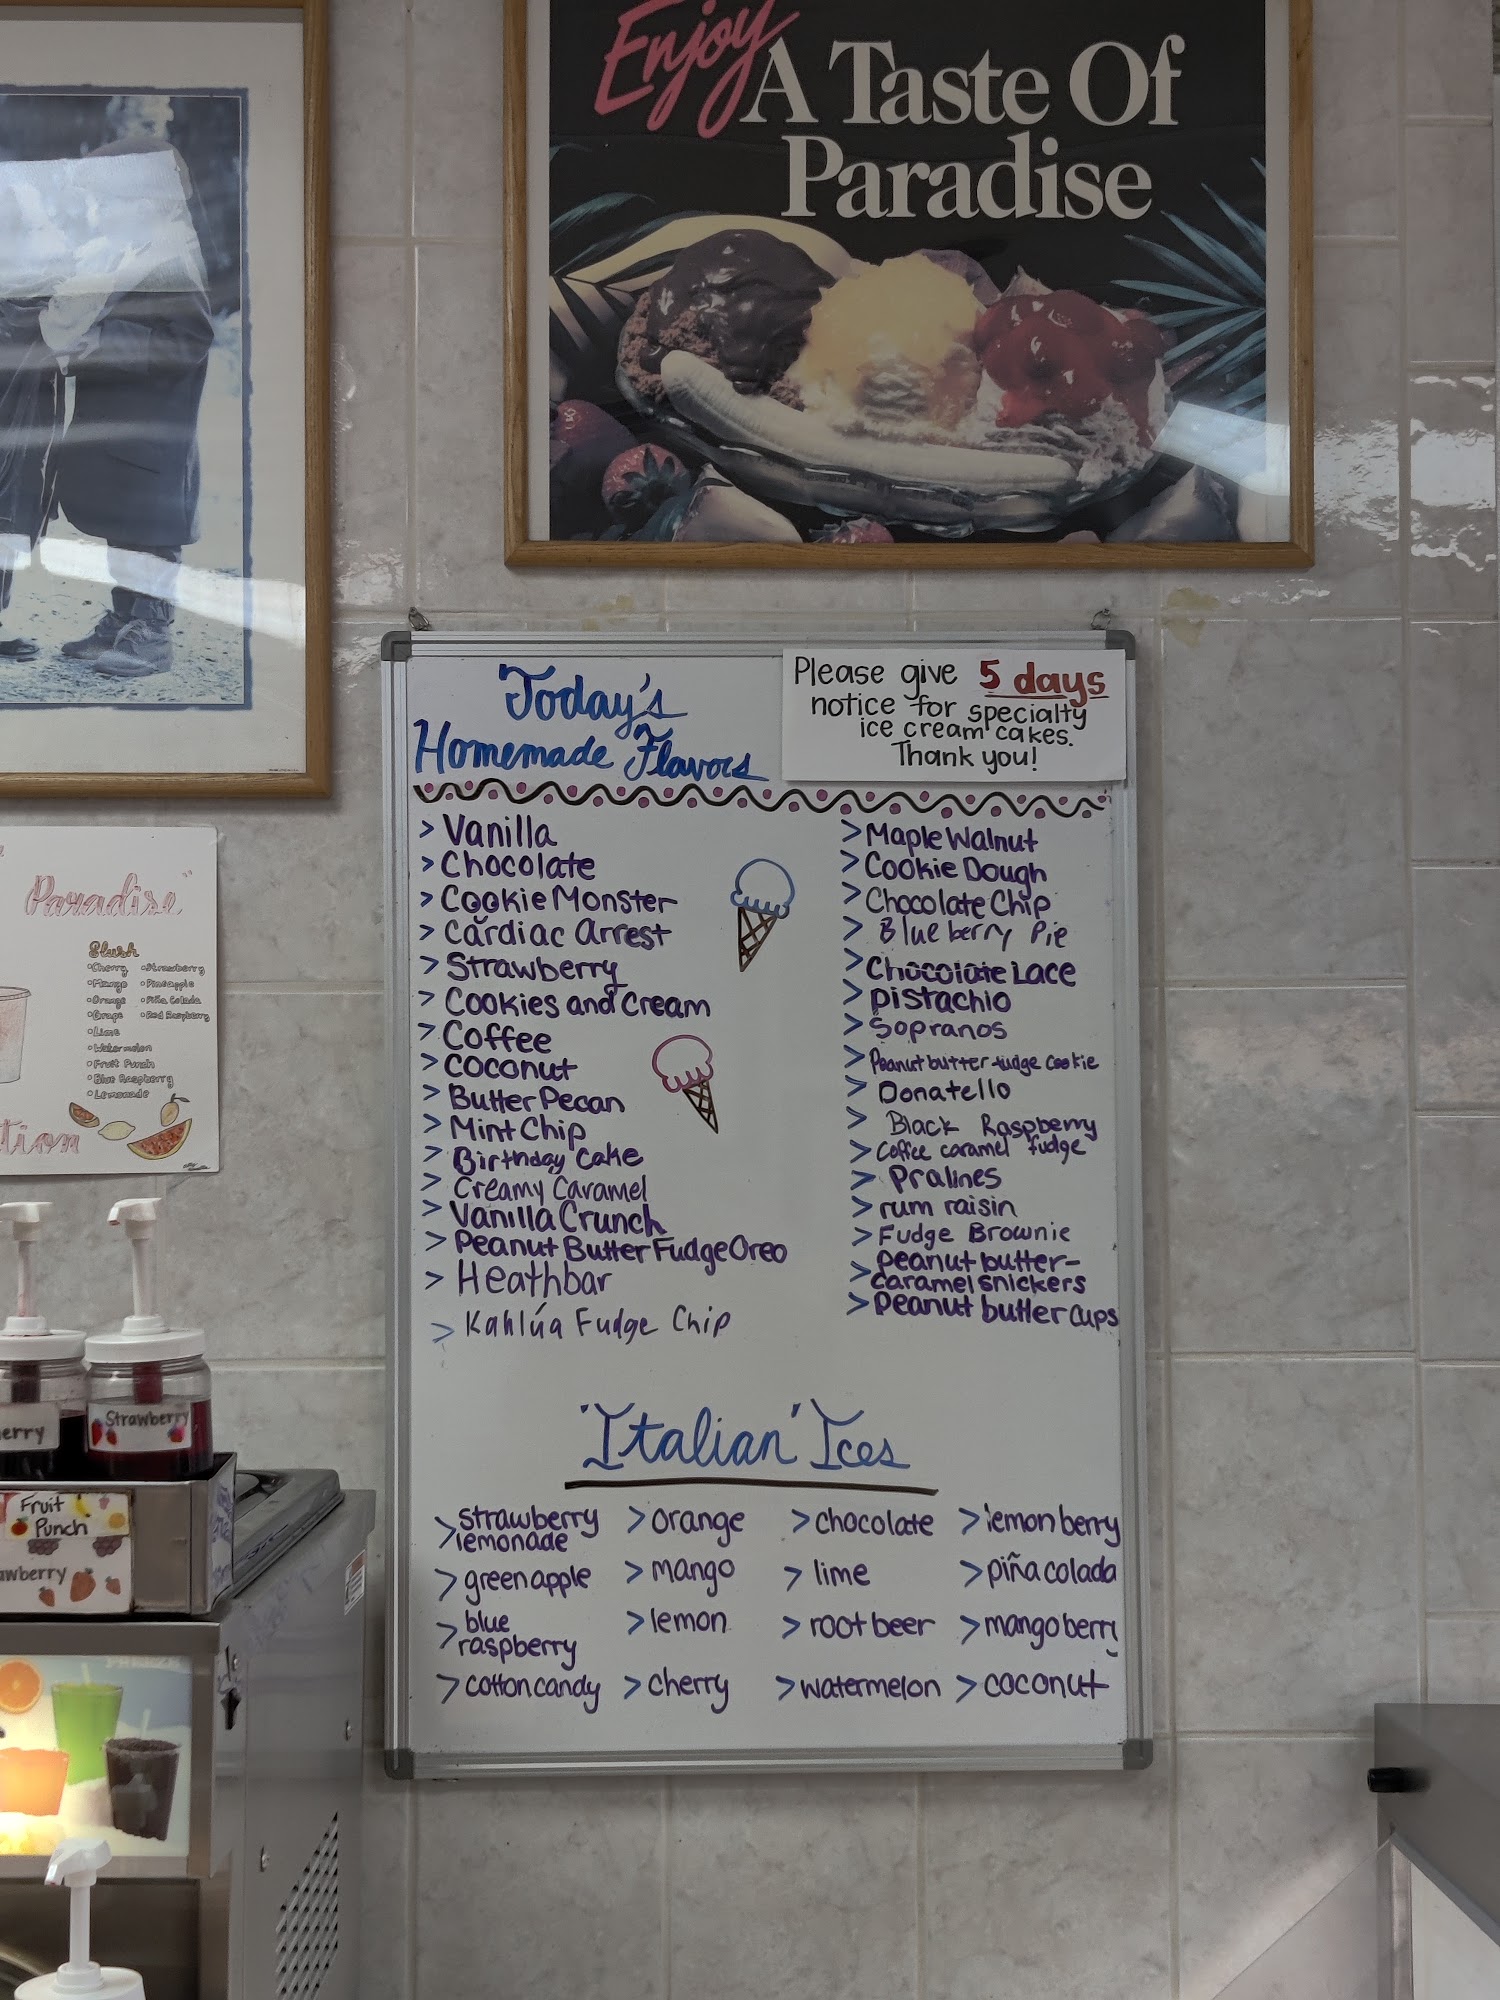 Enjoy
A Taste Of
Paradise
Today's
Homemade Flavors
Please give 5 days
notice for specialty
ice cream cakes.
Thank you!
> Vanilla
> Chocolate
> Cookie Monster
> Cardiac Arrest
> Strawberry
> Cookies and Cream
> Coffee
> Coconut
> Butter Pecan
> Mint Chip
> Birthday Cake
> Creamy Caramel
> Vanilla Crunch
> Peanut Butter Fudge Oreo
> Heathbar
> Kahlúa Fudge Chip
> Maple Walnut
> Cookie Dough
> Chocolate Chip
> Blueberry Pie
> Chocolate Lace
> Pistachio
> Sopranos
> Peanut butter fudge cookie
> Donatello
> Black Raspberry
> Coffee caramel fudge
> Pralines
> rum raisin
> Fudge Brownie
> peanut butter-
caramel snickers
> peanut butter cups
'Italian' Ices
> strawberry
lemonade
> green apple
> blue
raspberry
> cotton candy
> orange
> mango
> lemon
> cherry
> chocolate
> lime
> root beer
> watermelon
> lemon berry
> piña colada
> mango berry
> coconut
Paradise"
Slush
• Cherry
• Mango
• Orange
• Grape
• Lime
• Watermelon
• Fruit Punch
• Blue Raspberry
• Lemonade
• Strawberry
• Pineapple
• Piña Colada
• Red Raspberry
tion
erry
Strawberry
Fruit
Punch
awberry